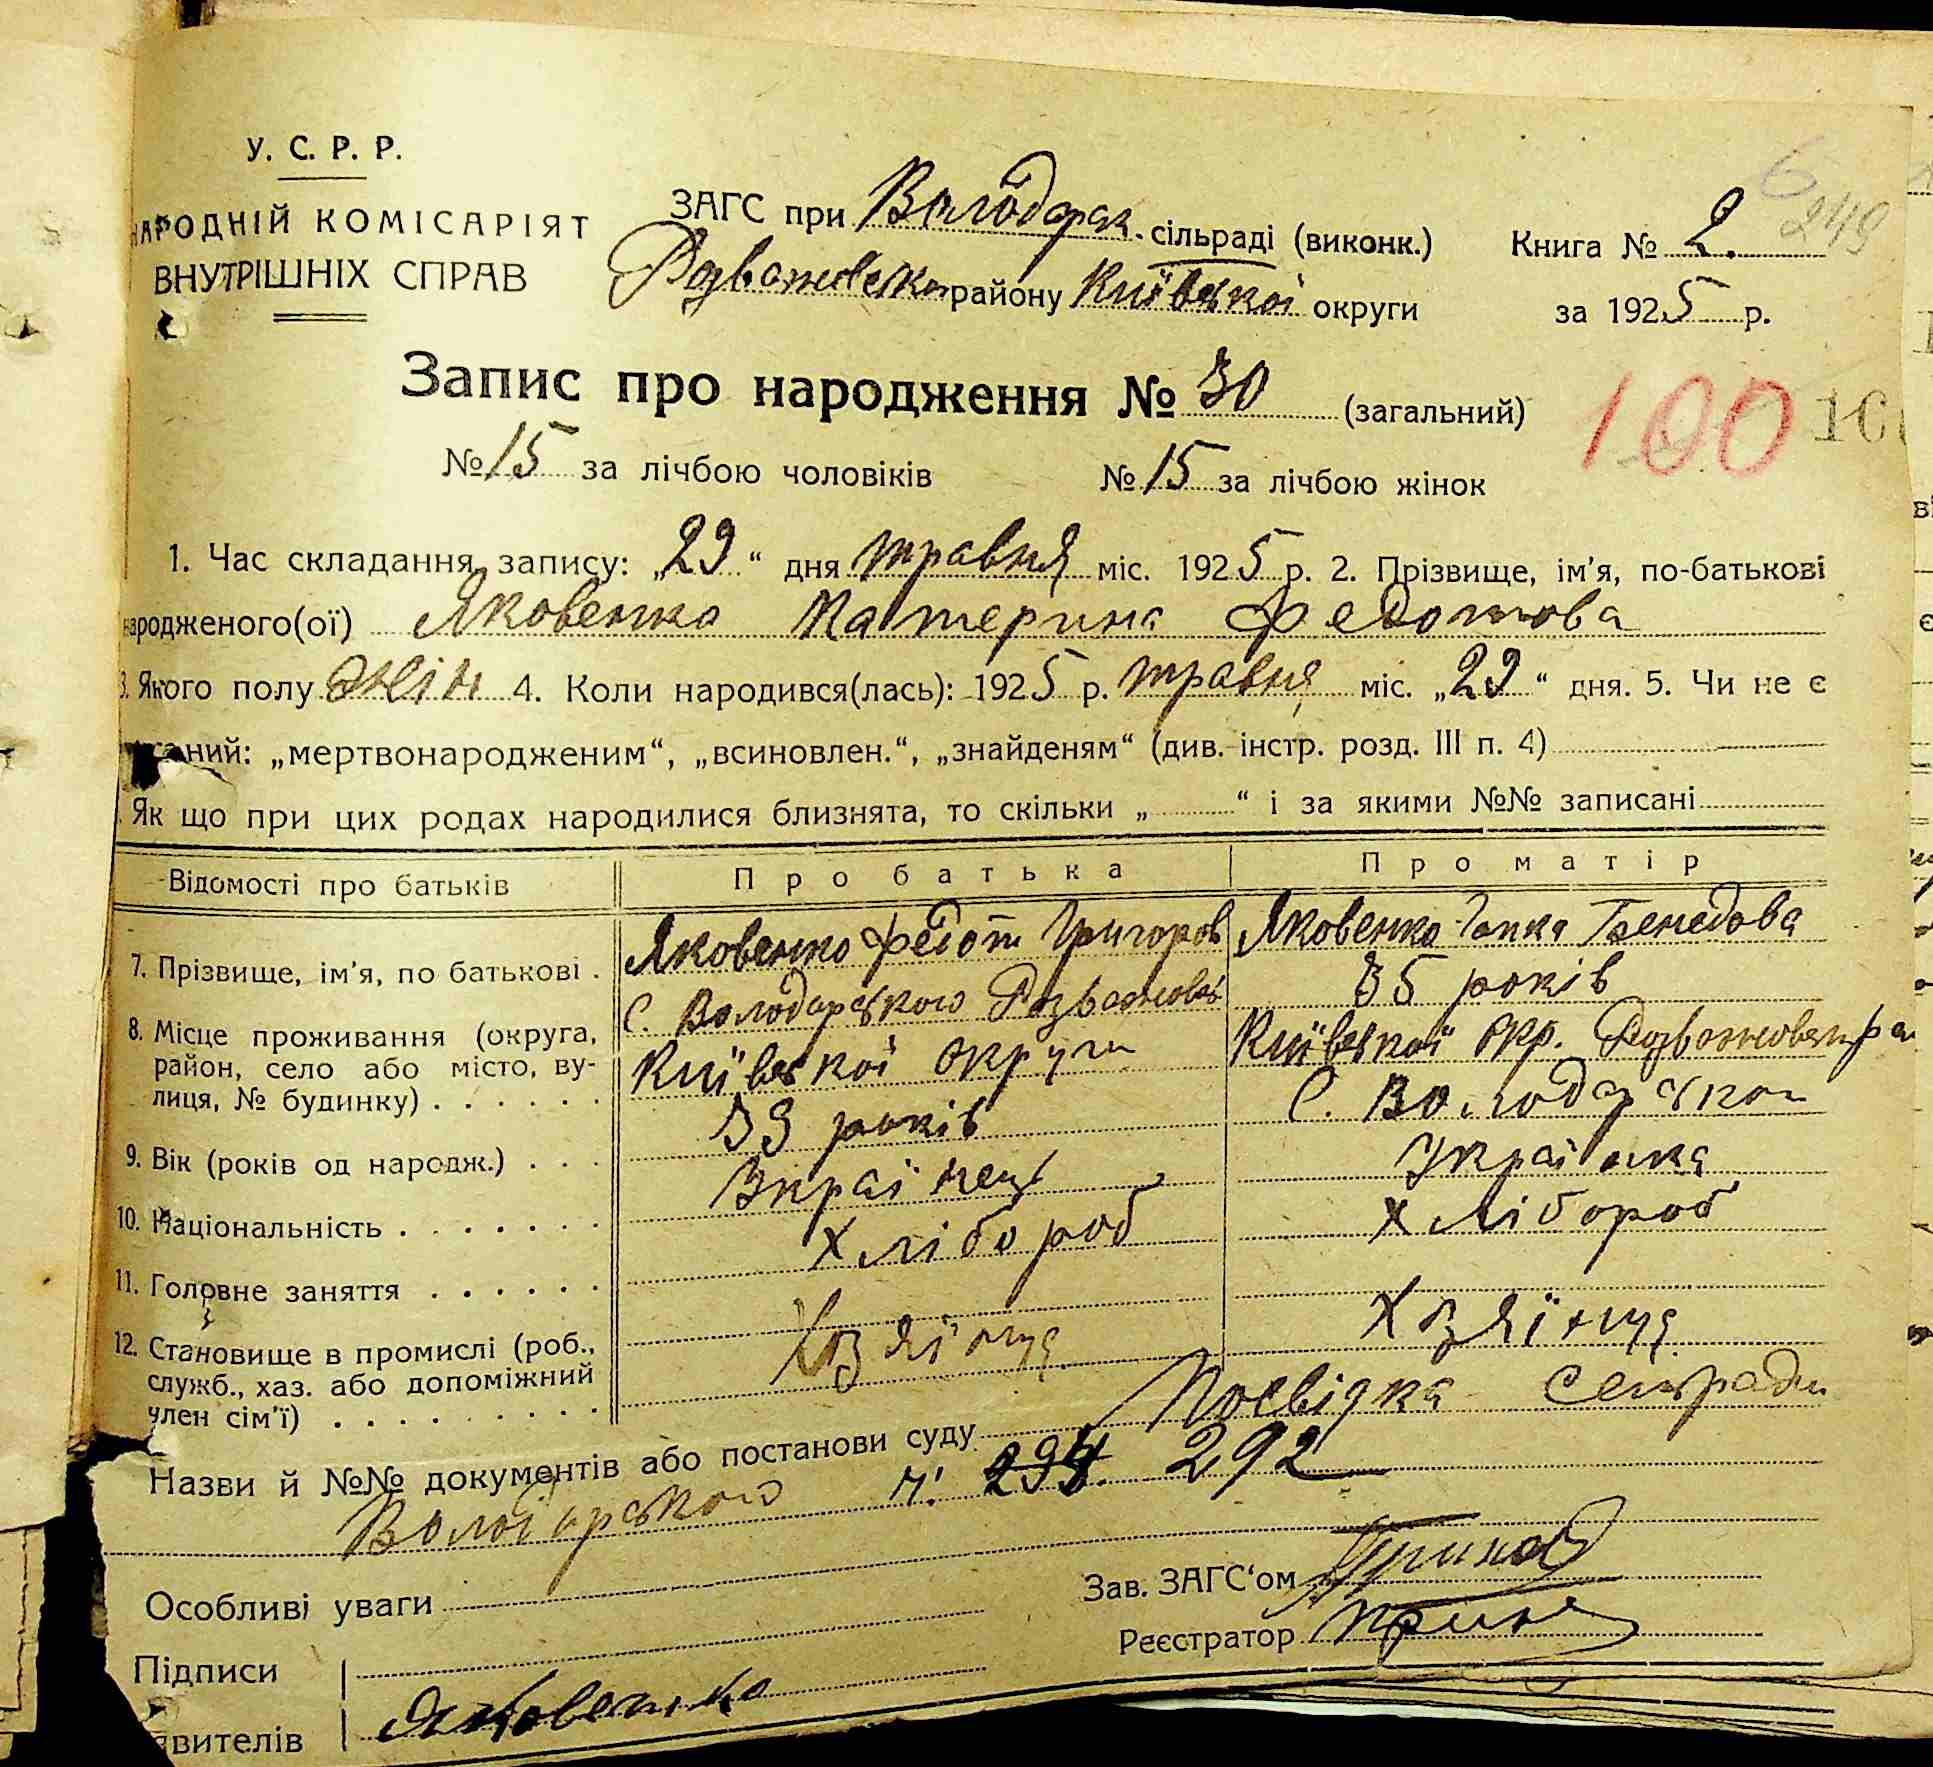 У. С. Р. Р.
НАРОДНІЙ КОМІСАРІЯТ
ВНУТРІШНІХ СПРАВ
ЗАГС при Володарск. сільраді (виконк.)
Розважевско району Київської округи
6
249
Книга № 2.
за 1925 р.
Запис про народження № 30 (загальний)
100
№ 15 за лічбою чоловіків № 15 за лічбою жінок
1. Час складання запису: „29“ дня травня міс. 1925 р. 2. Прізвище, ім'я, по-батькові
народженого(ої) Яковенко Катерина Федотова
3. Якого полу жін 4. Коли народився(лась): 1925 р. травня міс. „29“ дня. 5. Чи не є
ний: „мертвонародженим“, „всиновлен.“, „знайденям“ (див. інстр. розд. III п. 4)
Як що при цих родах народилися близнята, то скільки „ “ і за якими №№ записані
Відомості про батьків Про батька Про матір
7. Прізвище, ім'я, по батькові . Яковенко Федот Григоров Яковенко Гапка
35 років
8. Місце проживання (округа, район, село або місто, ву-
лиця, № будинку) . . . . . .
с. Володарського Розважевск
Київської округи
Київської окр. Розважевск ра
с. Володарског
9. Вік (років од народж.) . . . 39 років
10. Національність . . . . . . . Українець Українка
11. Головне заняття . . . . . . хлібороб хлібороб
12. Становище в промислі (роб.,
служб., хаз. або допоміжний
член сім'ї) . . . . . . . . .
Хозяїнує Хозяїнуя
Назви й №№ документів або постанови суду Посвідка сельради
Володарського ч. 292
Особливі уваги
Зав. ЗАГС‘ом
Реєстратор
Підписи
явителів
Яковенко